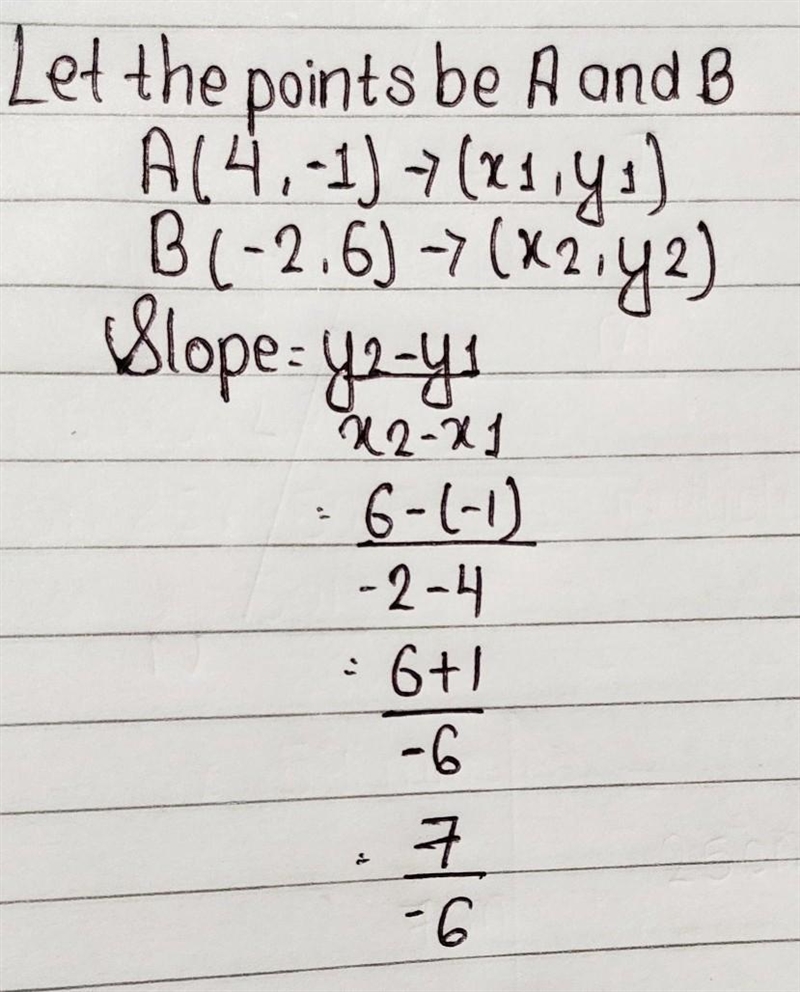 Let the points be A and B
A(4,-1) → (x1,y1)
B(-2,6) → (x2,y2)
Slope = y2-y1
x2-x1
= 6-(-1)
-2-4
= 6+1
-6
= 7
-6